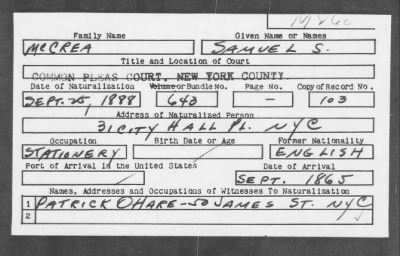 M260
Family Name Given Name or Names
McCREA SAMUEL S.
Title and Location of Court
COMMON PLEAS COURT, NEW YORK COUNTY
Date of Naturalization Volume or Bundle No. Page No. Copy of Record No.
SEPT. 25, 1888 643 — 103
Address of Naturalized Person
31 CITY HALL PL. NYC
Occupation Birth Date or Age Former Nationality
STATIONERY ENGLISH
Port of Arrival in the United States Date of Arrival
SEPT. 1865
Names, Addresses and Occupations of Witnesses To Naturalization
1 PATRICK O'HARE - 50 JAMES ST. NYC
2